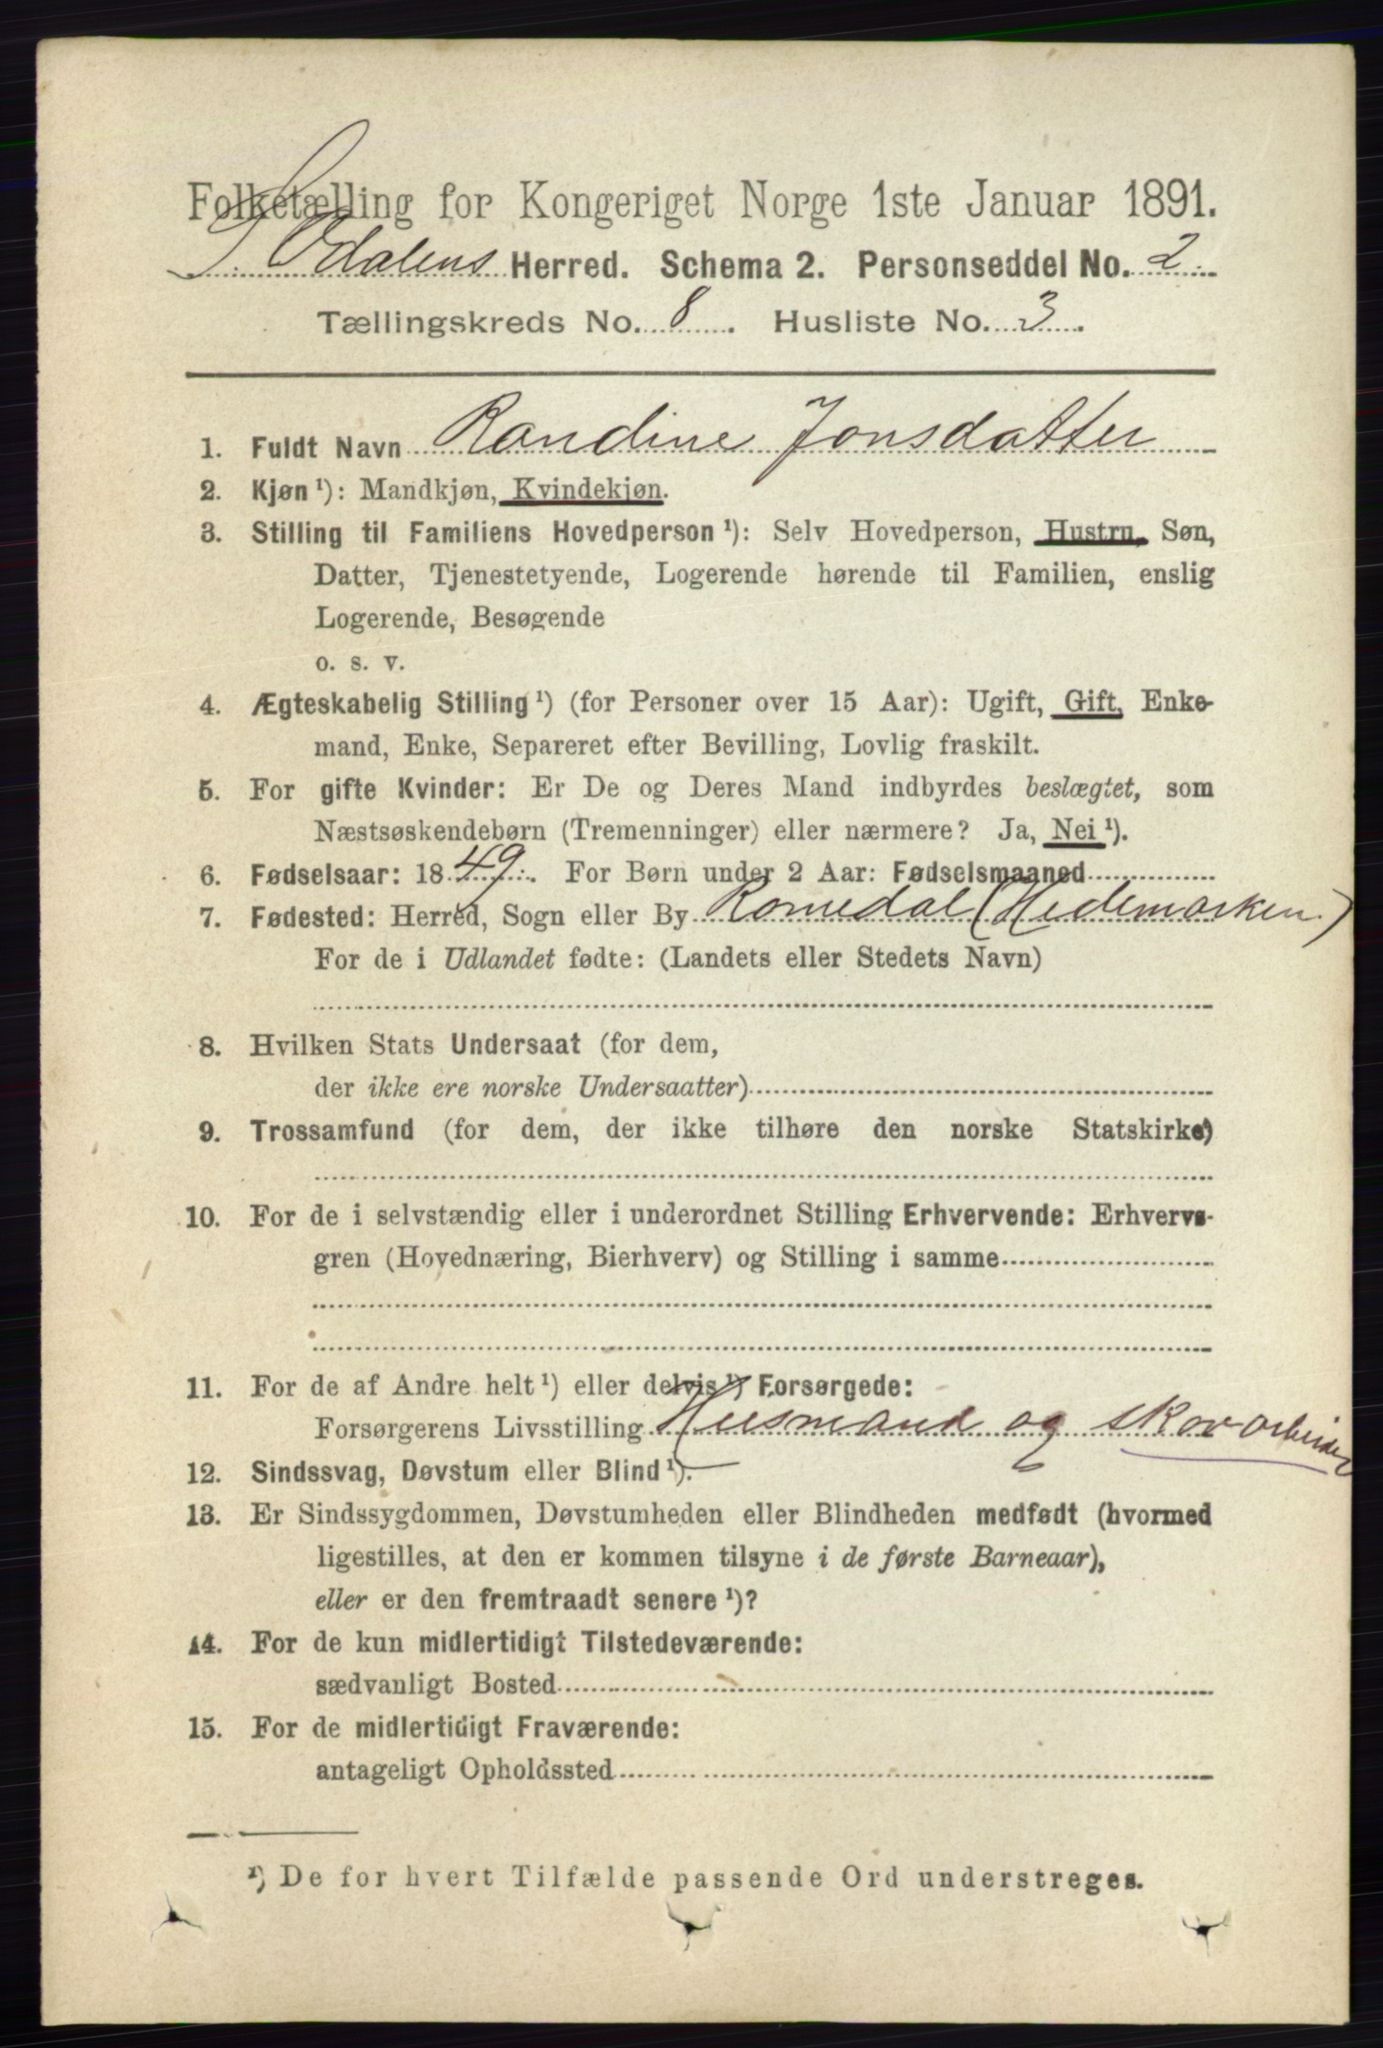 Folketælling for Kongeriget Norge 1ste Januar 1891.
S. Odalens Herred. Schema 2. Personseddel No. 2
Tællingskreds No. 8. Husliste No. 3.
1. Fuldt Navn Randine Jonsdatter
2. Kjøn ¹): Mandkjøn, Kvindekjøn.
3. Stilling til Familiens Hovedperson ¹): Selv Hovedperson, Hustru, Søn,
Datter, Tjenestetyende, Logerende hørende til Familien, enslig
Logerende, Besøgende
o. s. v.
4. Ægteskabelig Stilling ¹) (for Personer over 15 Aar): Ugift, Gift, Enke-
mand, Enke, Separeret efter Bevilling, Lovlig fraskilt.
5. For gifte Kvinder: Er De og Deres Mand indbyrdes beslægtet, som
Næstsøskendebørn (Tremenninger) eller nærmere? Ja, Nei ¹).
6. Fødselsaar: 1849. For Børn under 2 Aar: Fødselsmaaned
7. Fødested: Herred, Sogn eller By Romedal (Hedemarken)
For de i Udlandet fødte: (Landets eller Stedets Navn)
8. Hvilken Stats Undersaat (for dem,
der ikke ere norske Undersaatter)
9. Trossamfund (for dem, der ikke tilhøre den norske Statskirke)
10. For de i selvstændig eller i underordnet Stilling Erhvervende: Erhvervs-
gren (Hovednæring, Bierhverv) og Stilling i samme
11. For de af Andre helt ¹) eller delvis ¹) Forsørgede:
Forsørgerens Livsstilling Husmand og skovarbeider
12. Sindssvag, Døvstum eller Blind ¹).
13. Er Sindssygdommen, Døvstumheden eller Blindheden medfødt (hvormed
ligestilles, at den er kommen tilsyne i de første Barneaar),
eller er den fremtraadt senere ¹)?
14. For de kun midlertidigt Tilstedeværende:
sædvanligt Bosted
15. For de midlertidigt Fraværende:
antageligt Opholdssted
¹) De for hvert Tilfælde passende Ord understreges.